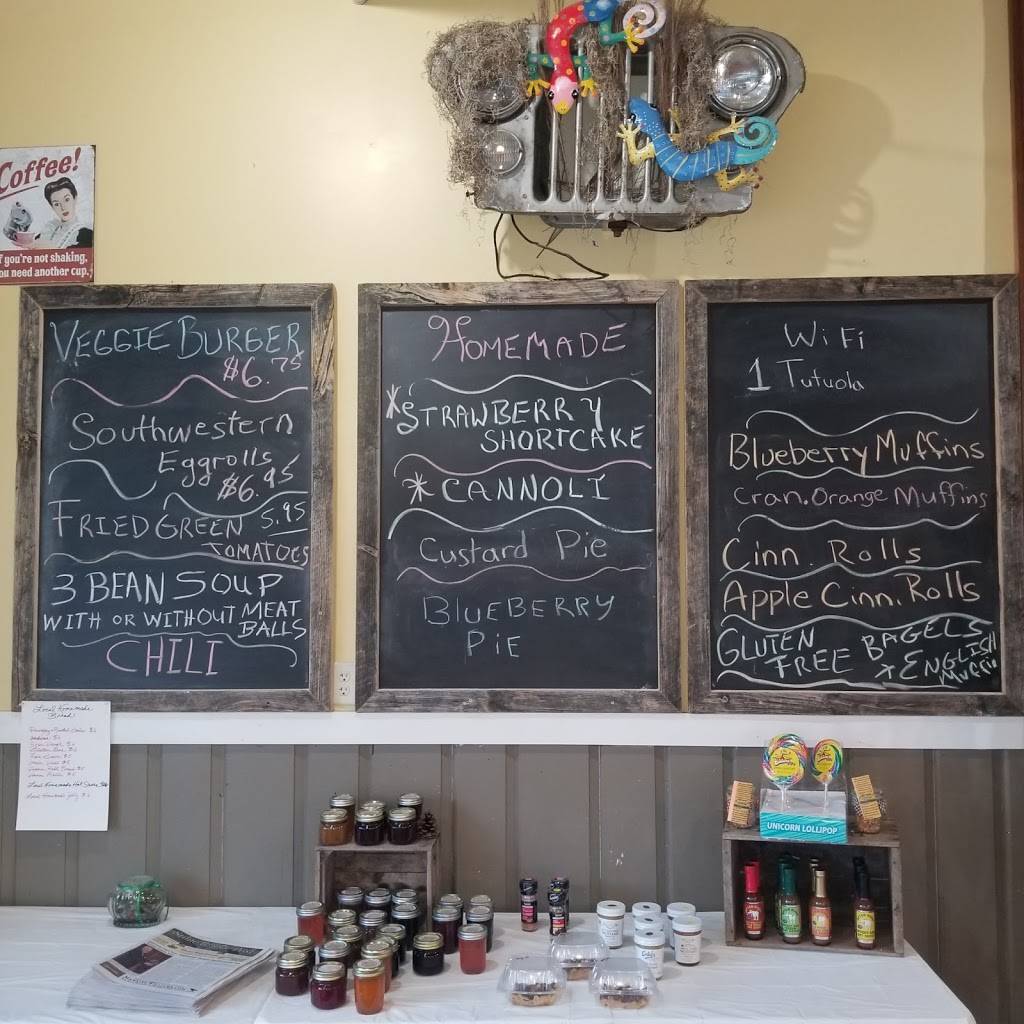 Coffee!
f you're not shaking,
ou need another cup.
VEGGIE BURGER
$6.75
Southwestern
Eggrolls
$6.95
FRIED GREEN 5.95
TOMATOES
3 BEAN SOUP
WITH OR WITHOUT MEAT
BALLS
CHILI
HOMEMADE
*STRAWBERRY
SHORTCAKE
*CANNOLI
Custard Pie
BLUEBERRY
PIE
WiFi
1 Tutuola
Blueberry Muffins
Cran. Orange Muffins
Cinn. Rolls
Apple Cinn. Rolls
GLUTEN
FREE BAGELS
+ ENGLISH
Muffin
Local Homemade
Bread
UNICORN LOLLIPOP